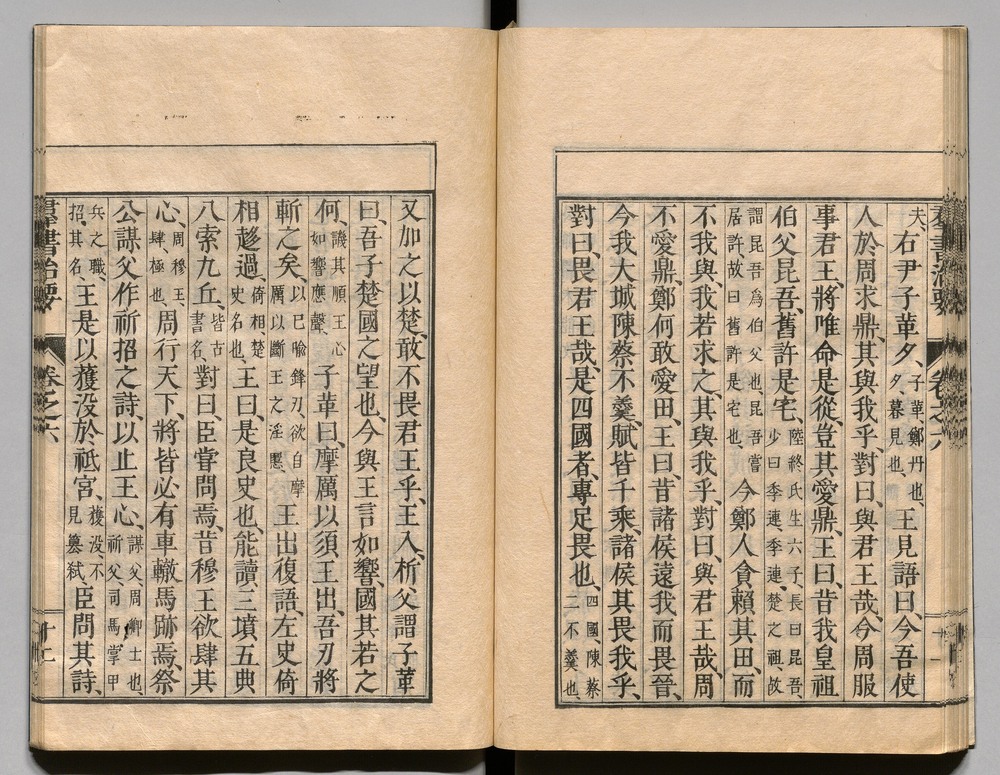 夫、右尹子革夕、子革鄭丹也、夕、暮見也、王見語曰、今吾使
人於周求鼎、其與我乎、對曰、與君王哉、今周服
事君王、將唯命是從、豈其愛鼎、王曰、昔我皇祖
伯父昆吾、舊許是宅、陸終氏生六子、長曰昆吾、少曰季連、季連、楚之祖、故
謂昆吾爲伯父也、昆吾嘗居許、故曰舊許是宅也、今鄭人貪賴其田、而
不我與、我若求之、其與我乎、對曰、與君王哉、周
不愛鼎、鄭何敢愛田、王曰、昔諸侯遠我而畏晉、
今我大城陳蔡不羹、賦皆千乘、諸侯其畏我乎、
對曰、畏君王哉、是四國者、專足畏也、四國、陳蔡二不羹也、
又加之以楚、敢不畏君王乎、王入、析父謂子革
曰、吾子楚國之望也、今與王言如響、國其若之
何、譏其順王心如響應聲、子革曰、摩厲以須、王出、吾刃將
斬之矣、以已喩鋒刃、欲自摩厲以斷王之淫慝、王出復語、左史倚
相趍過、倚相、楚史名也、王曰、是良史也、能讀三墳五典
八索九丘、皆古書名、對曰、臣嘗問焉、昔穆王欲肆其
心、周穆王、肆、極也、周行天下、將皆必有車轍馬跡焉、祭
公謀父作祈招之詩、以止王心、謀父、周卿士也、祈父、司馬、掌甲
兵之職、招、其名、王是以獲没於祗宮、獲没、不見簒弑、臣問其詩、
羣書治要 卷之六 十一